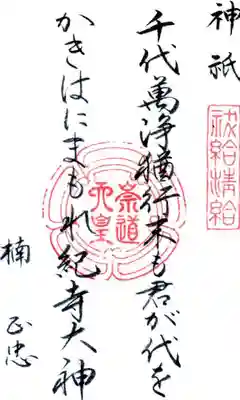 神祇
祓給清給
千代萬浄猶行末も君が代を
かきはにまもれ紀寺大神
崇道天皇
楠正忠